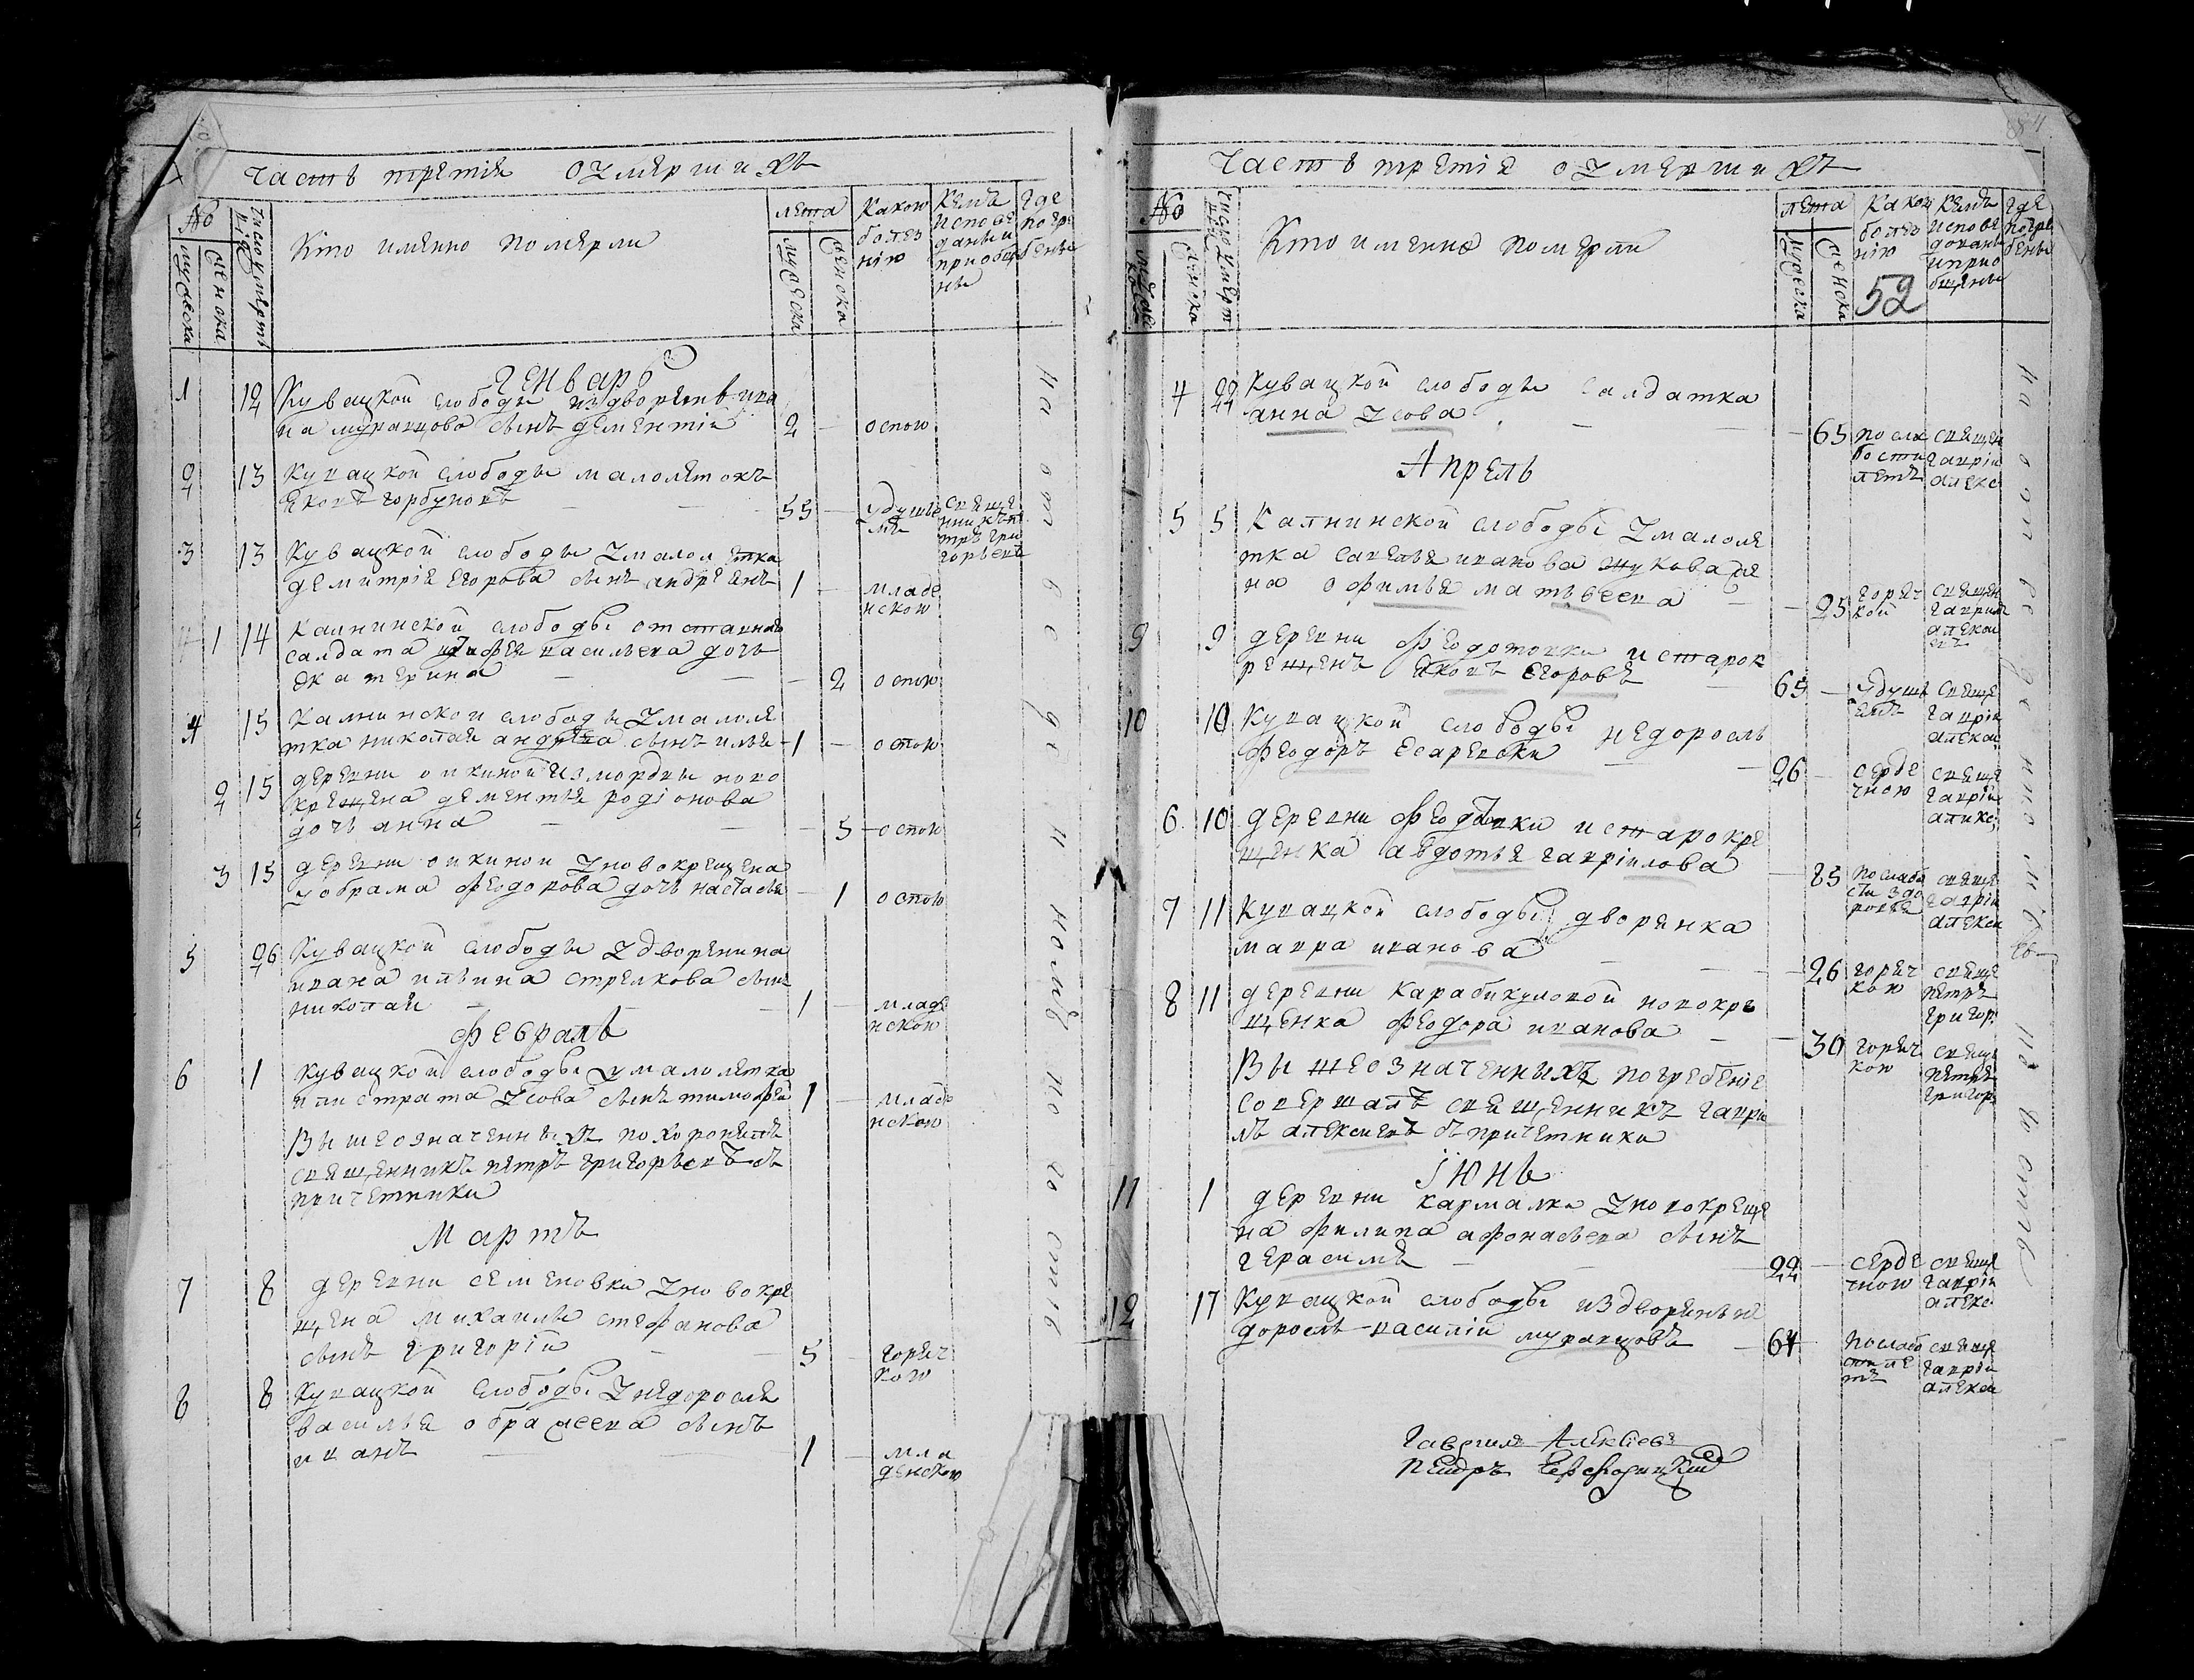 Часть третія о умершихъ
№
мужеска
женска
число умерт
Кто именно померли
лета
мужеска
женска
Какою
болез
нію
Кемъ
испове
даны и
приобще
ны
где
погре
бены
Генварь
1 12 Кувацкой слободы из дворянъ ива
на муравцова сынъ дементій 2 — оспою
2 13 Кувацкой слободы малолетокъ
яковъ горбуновъ — — 55 — удушь
емъ
священ
никъ пе
тръ гри
горьевъ
3 13 Кувацкой слободы у малолетка
демитрія егорова сынъ андреянъ 1 — младе
нскою
1 14 Калнинской слободы отставнаго
салдата васильева дочь
екатерина — — — 2 оспою
4 15 Калнинской слободы у малоле
тка николая андреева сынъ илья 1 — оспою
2 15 деревни оикиной из мордвы ново
крещена дементья родіонова
дочь анна — — — 5 оспою
3 15 деревни оикиной у новокрещена
абрама феодорова дочь настасья — 1 оспою
5 26 Кувацкой слободы у дворянина
ивана ильина стрелкова сынъ
николай — — 1 — младе
нскою
Февраль
6 1 Кувацкой слободы у малолетка
илистрата усова сынъ тимофей 1 — младе
нскою
Вышеозначенныхъ похоронилъ
священникъ петръ григорьевъ съ
причетники
Мартъ
7 8 деревни семеновки у новокре
щена михаилы стефанова
сынъ григорій — — 5 — горяч
кою
8 8 Кувацкой слободы у недоросля
василья обрамеева сынъ
иванъ — — 1 — мла
денскою
на отведеной нову по вости
Часть третія о умершихъ
№
мужеска
женска
число умерт
Кто именно померли
лета
мужеска
женска
Какою
болез
нію
52
Кемъ
испове
дованы
и прио
бщены
где
погре
бены
4 22 Кувацкой слободы салдатка
анна усова — — — 65 по сла
бости
летъ
священ
гаврiи
алексе
Апрель
5 5 Калнинской слободы у малоле
тка савелья иванова жукова же
на офимья матвеева — — 25 горяч
кой
священ
гавриил
алексеи
евъ
9 9 деревни феодотовки и старок
рещенъ яковъ егоровъ — 65 — удушь
емъ
свяще
гаврiи
алексеи
10 10 Кувацкой слободы недоросль
феодоръ есаревски — — 26 — серде
чною
свяще
гаврiи
алике
6 10 деревни феодотовки и старокре
щенка авдотья гавріилова — 85 по слабо
сти здо
ровья
свяще
гаврiи
алексеи
7 11 Кувацкой слободы дворянка
мавра иванова — — — 26 горяч
кою
свяще
петръ
григор
8 11 деревни Карабикуловой новокре
щенка феодора иванова — — 30 горяч
кою
свяще
петръ
григор
Вышеозначенныхъ погребеніе
совершалъ священникъ гаври
лъ алексиевъ съ причетники
Іюнь
11 1 деревни кармалка у новокреще
на филипа афонасьева сынъ
герасимъ — — — 22 — серде
чною
свяще
гаврiи
алексе
12 17 Кувацкой слободы из дворянъ не
доросль василіи муравцовъ — 64 по слабо
сти ле
тъ
свяще
гаврiи
алексеи
Гавриилъ Алексіевъ
Петръ